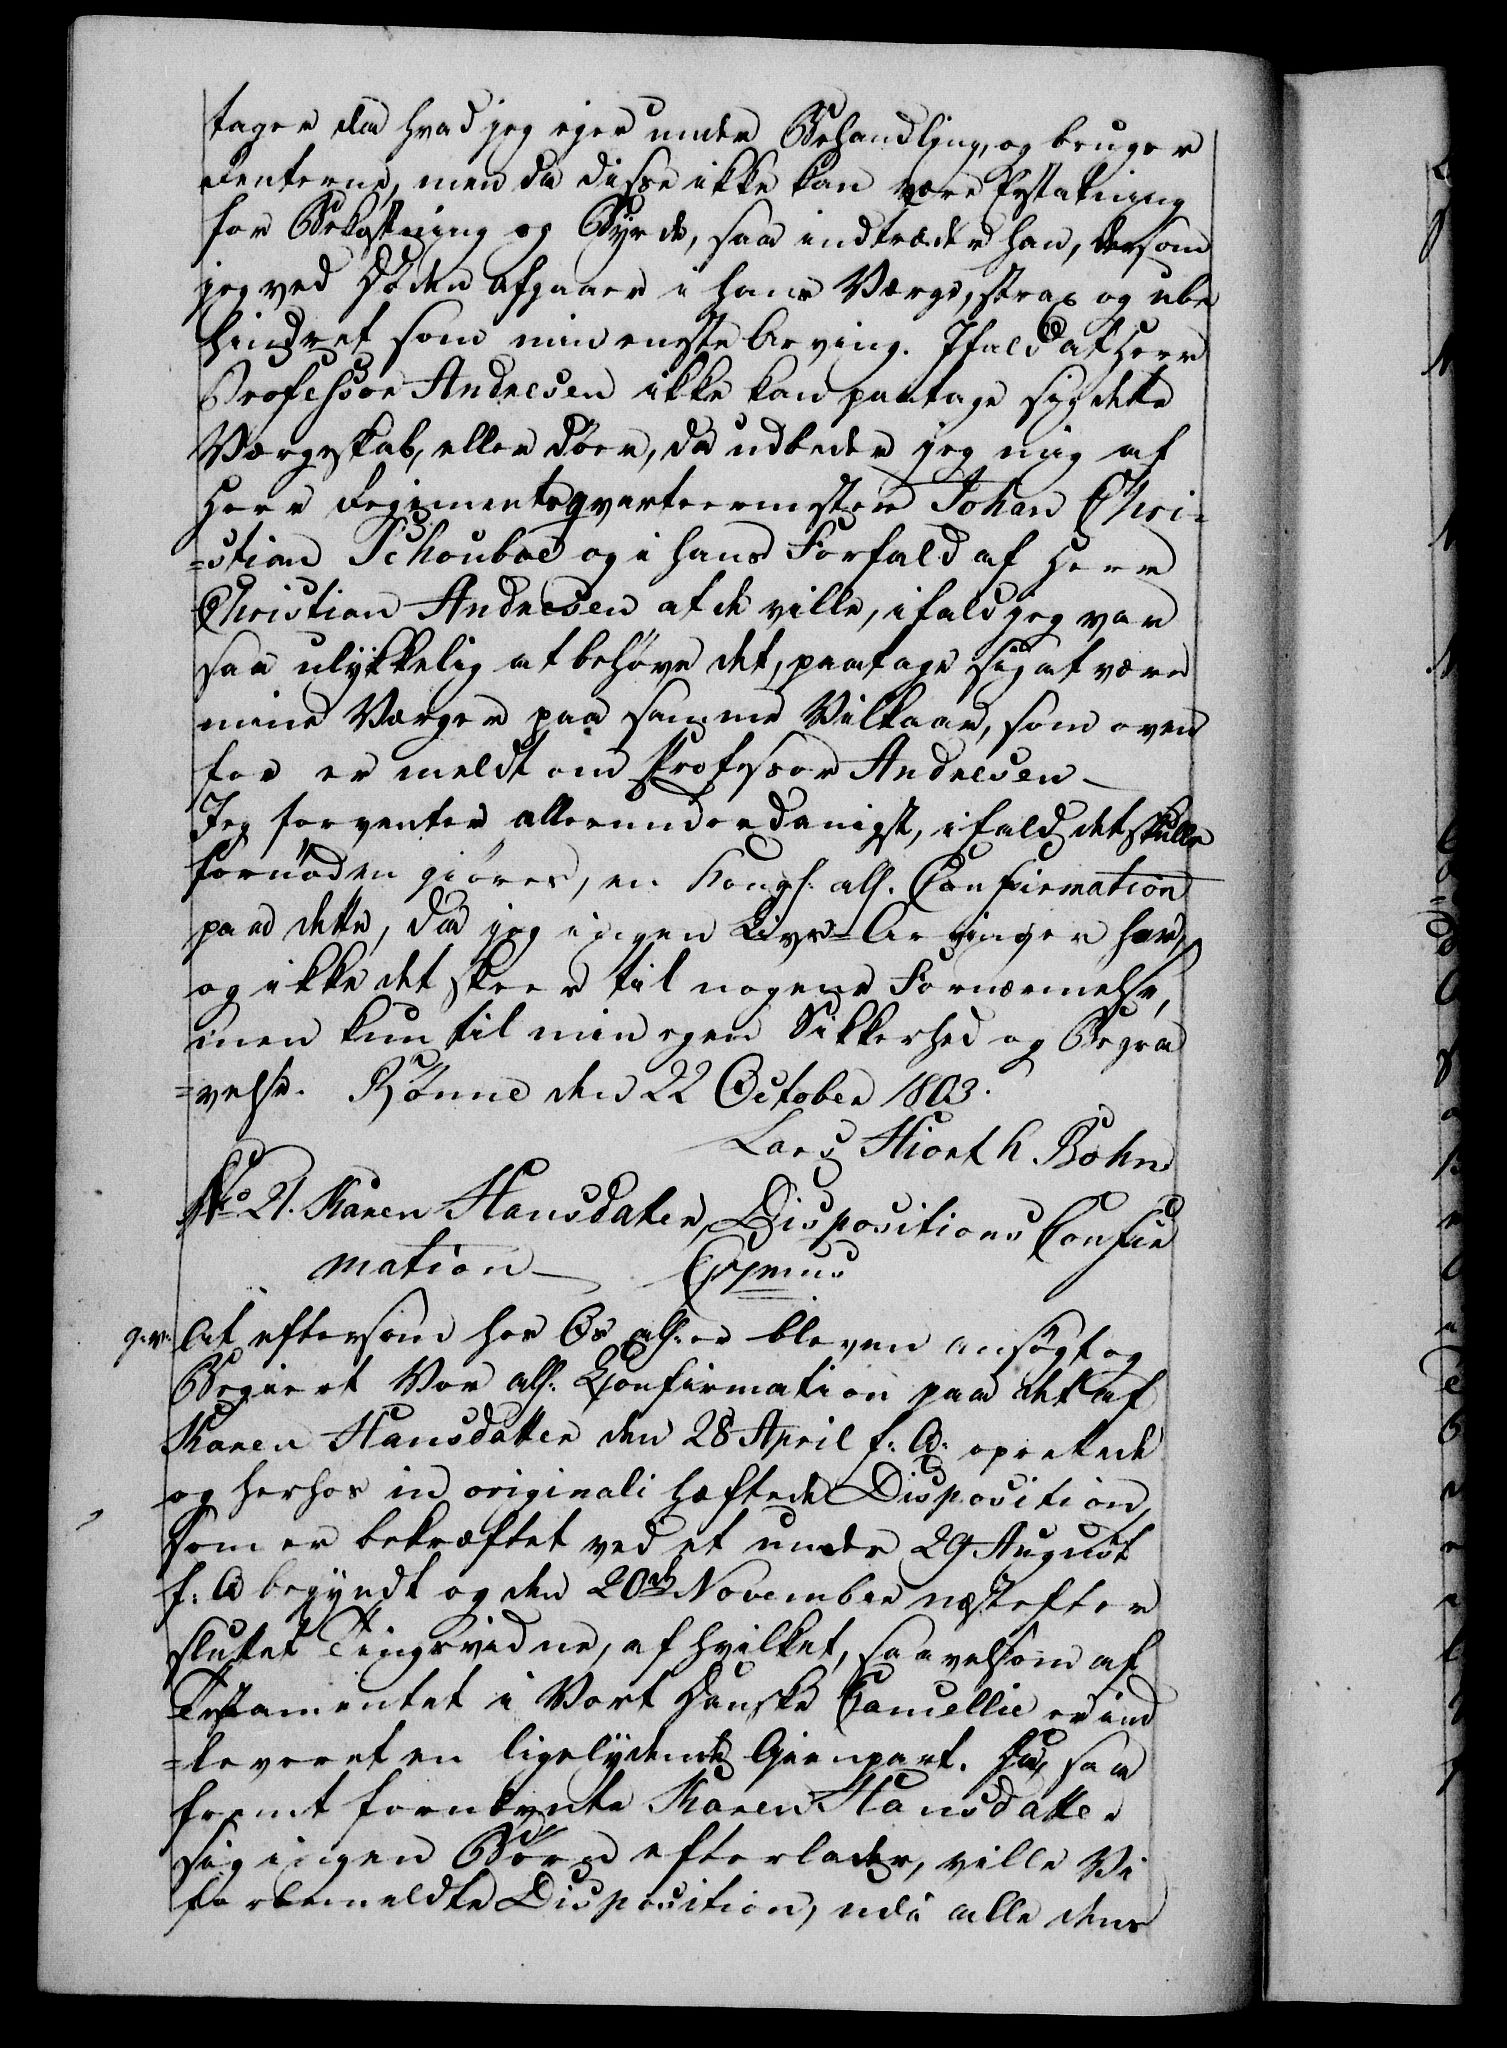 tager da hvad jeg ejer under Behandling, og bruger
Renterne, men da disse ikke kan være Erstatning
for Bekostning og Byrde, saa indtræder han, dersom
jeg ved Døden afgaaer i hans Værge, strax og ube
hindret som min eneste Arving. Ifald at Herr
Professor Andresen ikke kan paatage sig dette
Værgeskab, eller döer, da udbeder jeg mig af
Herr Regimentsqvarteermester Johan Chri-
=stian Schouboe og i hans Forfald af Herr
Christian Andresen at de ville, ifald jeg var
saa ulykkelig at behöve det, paatage sig at være
mine Værger paa samme Vilkaar, som oven
for er meldt om Professor Andresen
Jeg forventer allerunderdanigst, ifald det skulle
fornöden giöres, en Kongl: all. Confirmation
paa dette, da jeg ingen Livs-Arvinger har,
og ikke det skeer til nogens Fornærmelse,
men kun til min egen Sikkerhed og Begra
=velse. Rönne den 22 October 1803.
Lars Hiorth Bohn
No 21. Karen Hansdatter, Dispositions Confir
mation
g:v: At eftersom hos Os all: er bleven ansögt og
Begiert Vor all: Confirmation paa det af
Karen Hansdatter den 28 April f: A: oprettede
og herhos in originali hæftede Disposition,
som er bekræftet ved et under 29 August
f: A begyndt og den 20de November næstefter
sluttet Tingsvidne, af hvilket, saavelsom af
Testamentet i Vort Danske Cancellie er ind
=leveret en ligelydende Gienpart. Da, saa
fremt fornævnte Karen Hansdatter
sig ingen Börn efterlader, ville Vi
forbemeldte Disposition, udi alle dens